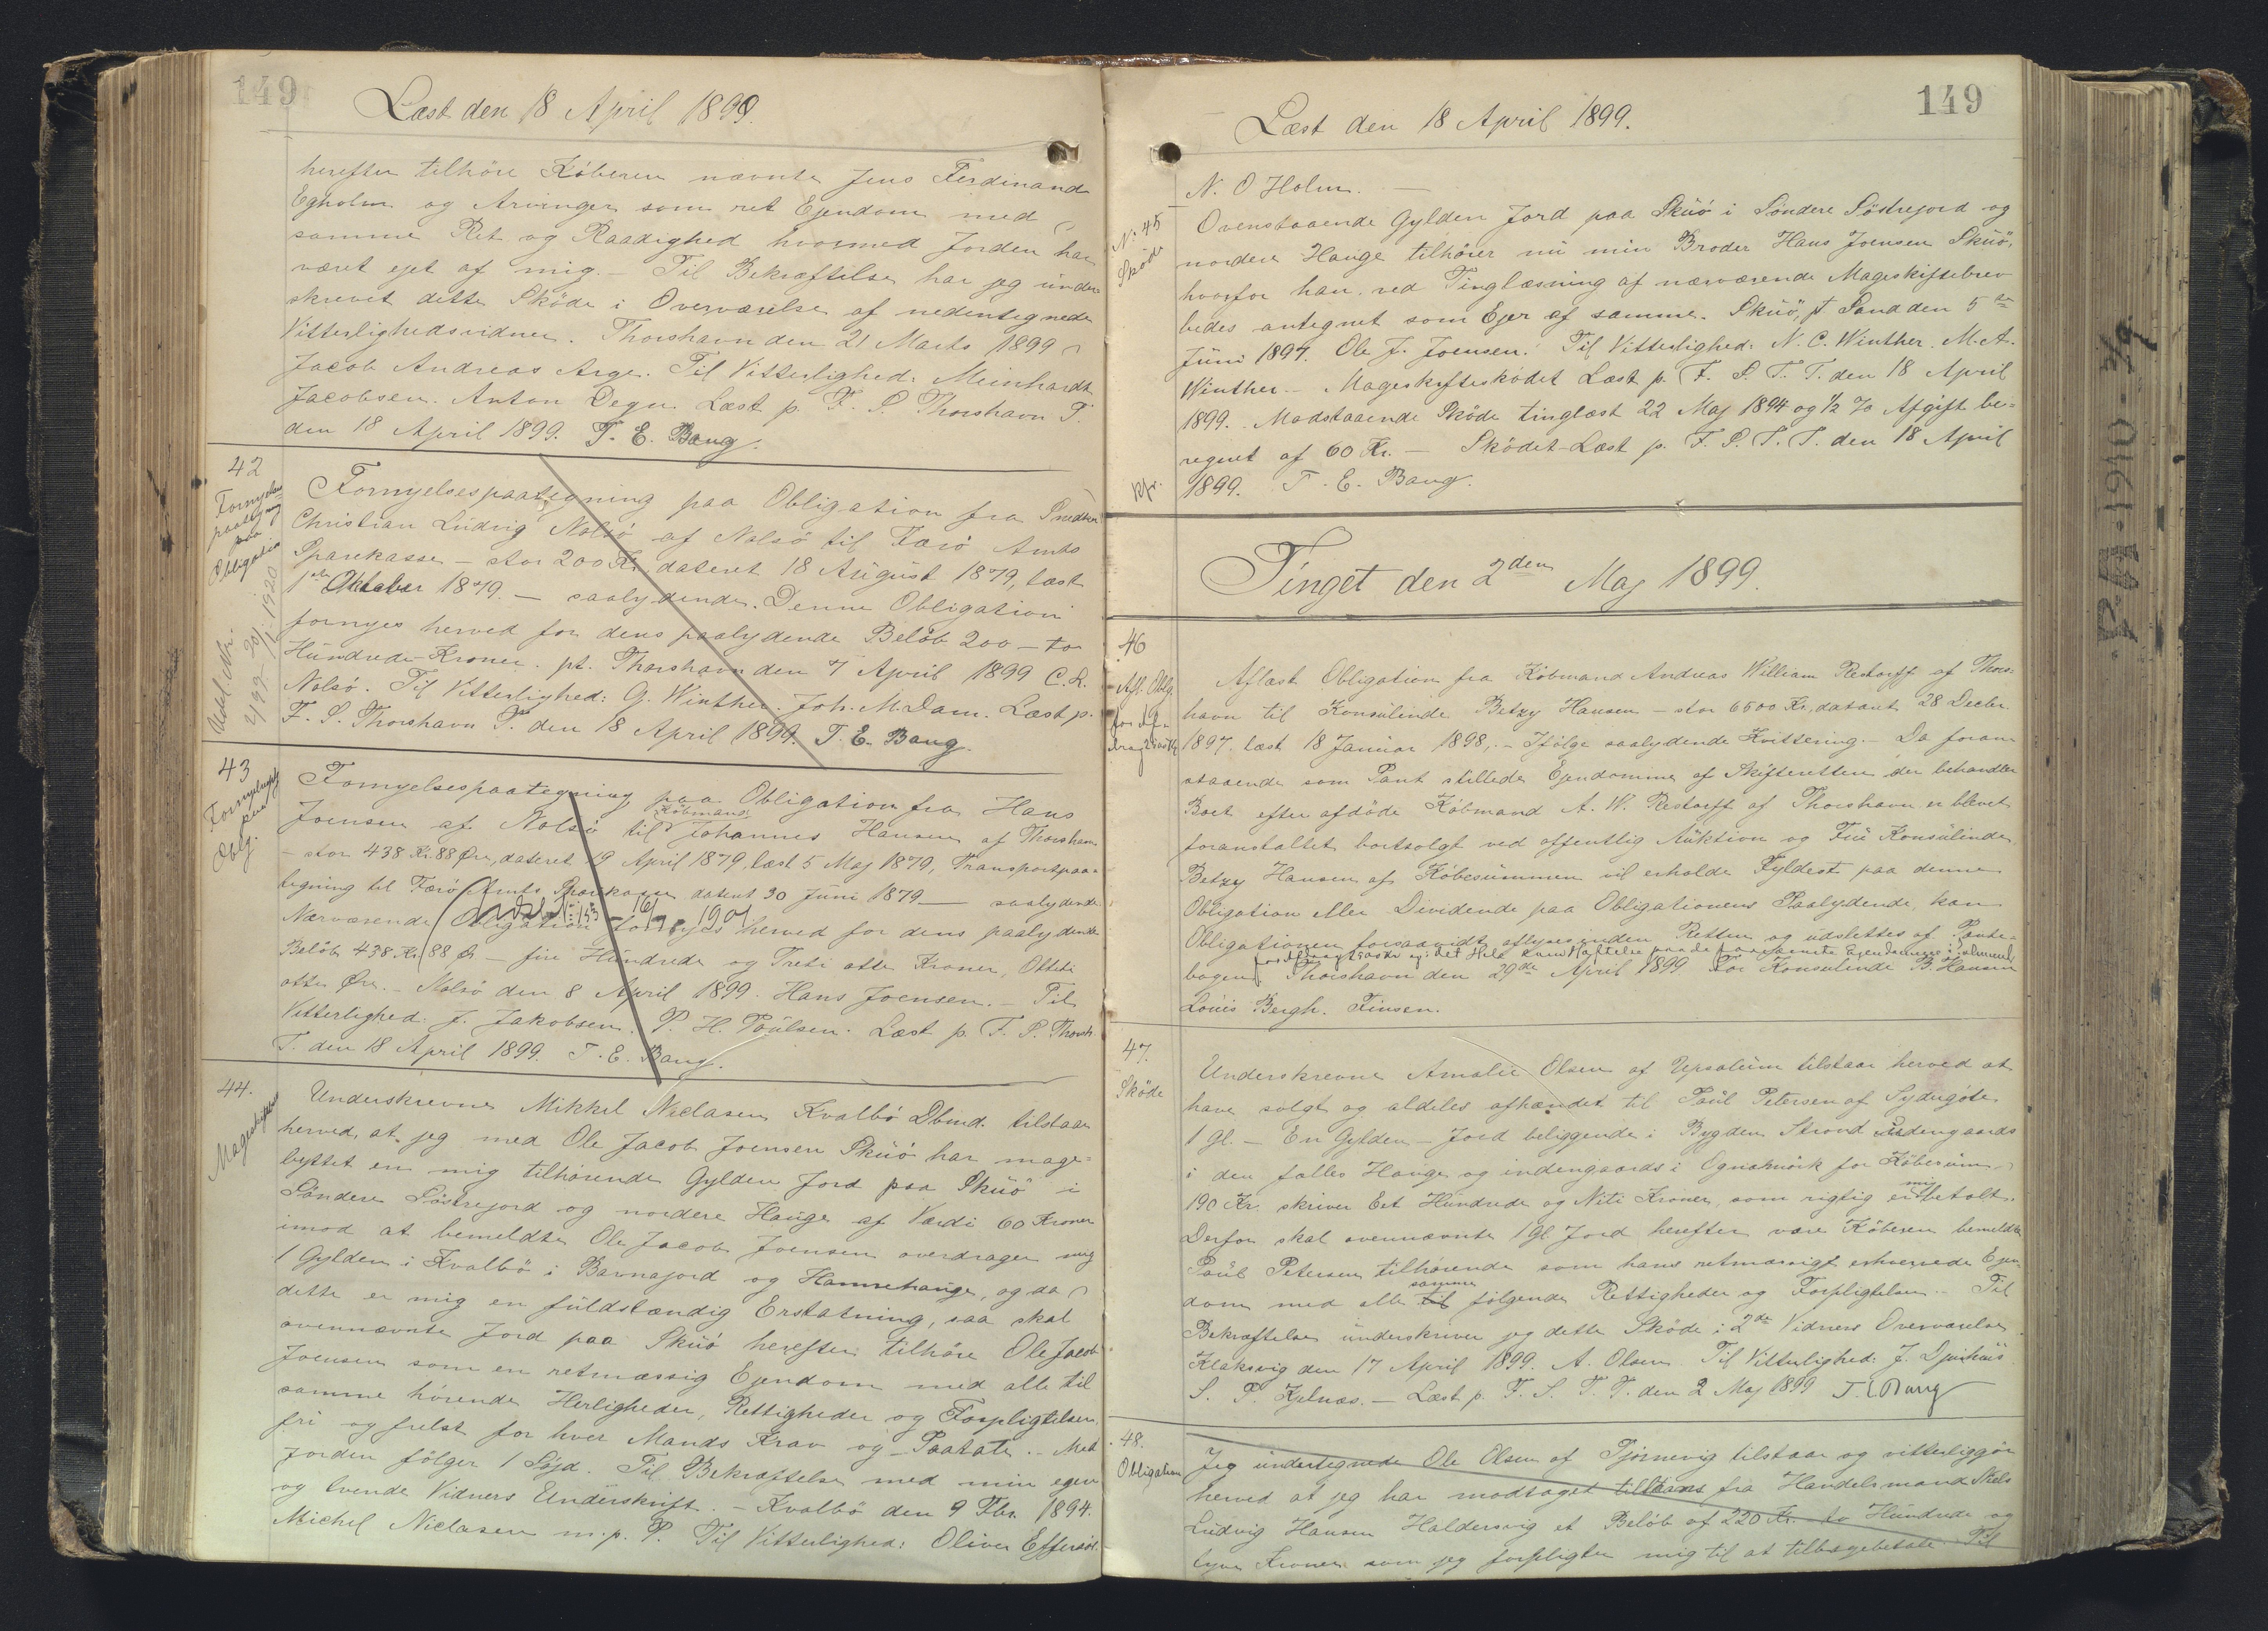 149
Læst den 18 April 1899.
herefter tilhöre Köberen nævnte Jens Ferdinand
Egholm og Arvinger som ret Ejendom med
samme Ret og Raadighed hvormed Jorden har
været ejet af mig. – Til Bekræftelse har jeg under-
skrevet dette Sköde i Overværelse af nedentegnede
Vitterlighedsvidner. Thorshavn den 21 Marts 1899
Jacob Andreas Arge. Til Vitterlighed: Meinhardt
Jacobsen. Anton Degn. Læst p. F. S. Thorshavn T.
den 18 April 1899. T. E. Bang.
42
Fornyelses
paategning
paa
Obligation
Udsl. Nr.
2199 - 20/11 1920
Fornyelsespaategning paa Obligation fra Snedker
Christian Ludvig Nolsö af Nolsö til Færö Amts
Sparekasse – stor 200 Kr. dateret 18 August 1879, læst
1ste Oktober 1879. – saalydende. Denne Obligation
fornyes herved for dens paalydende Belöb 200 – to
Hundrede Kroner. pt. Thorshavn den 7 April 1899 C. L.
Nolsö. Til Vitterlighed: G. Winther. Joh. M. Dam. Læst p.
F. S. Thorshavn T. den 18 April 1899. T. E. Bang.
43
Fornyelsespt
paa
Oblg.
Fornyelsespaategning paa Obligation fra Hans
Joensen af Nolsö til Købmand Johannes Hansen af Thorshavn
– stor 438 Kr. 88 Øre, dateret 19 April 1879, læst 5 Maj 1879, Transportpaa-
tegning til Færö Amts Sparekasse dateret 30 Juni 1879 – saalydende
Nærværende Obligation fornyes herved for dens paalydende
Belöb 438 Kr. 88 Ør – fire Hundrede og Treti otte Kroner, Otteti
otte Øre. – Nolsö den 8 April 1899. Hans Joensen. – Til
Vitterlighed. J. Jakobsen. P. H. Poulsen. Læst p. F. S. Thorsh.
T. den 18 April 1899. T. E. Bang.
44.
Mageskifte
Underskrevne Mikkel Niclasen Kvalbö Dbmd. tilstaar
herved, at jeg med Ole Jacob Joensen Skuö har mage-
byttet en mig tilhörende Gylden Jord paa Skuö i
Söndere Söstrejord og nordere Hauge af Værdi 60 Kroner
imod at bemeldte Ole Jacob Joensen overdrager mig
1 Gylden i Kvalbö i Barnajord og Hannehauge, og da
dette er mig en fuldstændig Erstatning, saa skal
ovennævnte Jord paa Skuö herefter tilhöre Ole Jacob
Joensen som en retmæssig Ejendom med alle til
samme hörende Herligheder, Rettigheder og Forpligtelser,
fri og frelst for hver Mands Krav og Paatale. – Med
Jorden fölger 1 Sojd. Til Bekræftelse med min egen
og tvende Vidners Underskrift. – Kvalbö den 9 Fbr. 1894.
Michel Niclasen m. p. P. Til Vitterlighed: Oliver Effersöe.
149
Læst den 18 April 1899.
N. O Holm. –
No. 45
Sköde
Ovenstaaende Gylden Jord paa Skuö i Söndere Söstrejord og
nordere Hauge tilhörer nu min Broder Hans Joensen Skuö,
hvorfor han ved Tinglæsning af nærværende Mageskiftebrev
bedes antegnet som Ejer af samme. Skuö, pt Sand den 5te
Juni 1897. Ole J. Joensen. Til Vitterlighed: N. C. Winther. M. A.
Winther. – Mageskifteskødet Læst p. F. S. T. T. den 18 April
1899. Modstaaende Sköde tinglæst 22 Maj 1894 og ½ % Afgift be-
regnet af 60 Kr. – Sködet Læst p. F. S. T. T. den 18 April
1899. T. E. Bang.
Kfr.
Tinget den 2den Maj 1899.
46
Afl. Oblg.
Aflæst Obligation fra Köbmand Andreas William Restorff af Thors-
havn til Konsulinde Betzy Hansen – stor 6500 Kr, dateret 28 Decbr.
1897. læst 18 Januar 1898, – Ifölge saalydende Kvittering. – Da foran-
staaende som Pant stillede Ejendomme af Skifteretten der behandler
Boet efter afdöde Köbmand A. W. Restorff af Thorshavn er blevet
foranstaltet bortsolgt ved offentlig Auktion og Fru Konsulinde
Betzy Hansen af Köbesummen vil erholde Fyldest paa denne
Obligation eller Dividende paa Obligationens Paalydende, kan
Obligationen forsaavidt aflyses inden Retten og udslettes af Pante-
bogen. Thorshavn den 29de April 1899 For Konsulinde B. Hansen
Louis Bergh. Finsen.
47.
Sköde
Underskrevne Amalie Olsen af Upsalum tilstaar herved at
have solgt og aldeles afhændet til Poul Petersen af Sydrugöte
1 gl. – En Gylden – Jord beliggende i Bygden Strond udengaards
i den fælles Hauge og indengaards i Ognamörk for Köbesum
190 Kr. skriver Eet Hundrede og Niti Kroner, som rigtig er mig betalt.
Derfor skal ovennævnte 1 gl. Jord herefter være Köberen bemeldte
Poul Petersen tilhörende som hans retmæssigt erhvervede Ejen-
dom med alle til samme fölgende Rettigheder og Forpligtelser. – Til
Bekræftelse underskriver jeg dette Sköde i 2de Vidners Overværelse
Klaksvig den 17 April 1899. A. Olsen. Til Vitterlighed: J. Djurhuus
S. P. Kjelnæs. – Læst p. F. S. T. T. den 2 Maj 1899 T. E. Bang
48.
Obligation
Jeg undertegnede Ole Olsen af Tjörnevig tilstaar og vitterliggör
herved at jeg har modtaget tillaans fra Handelsmand Niels
Ludvig Hansen Haldersvig et Belöb af 220 Kr. to Hundrede og
tyve Kroner som jeg forpligter mig til at tilbagebetale. Til